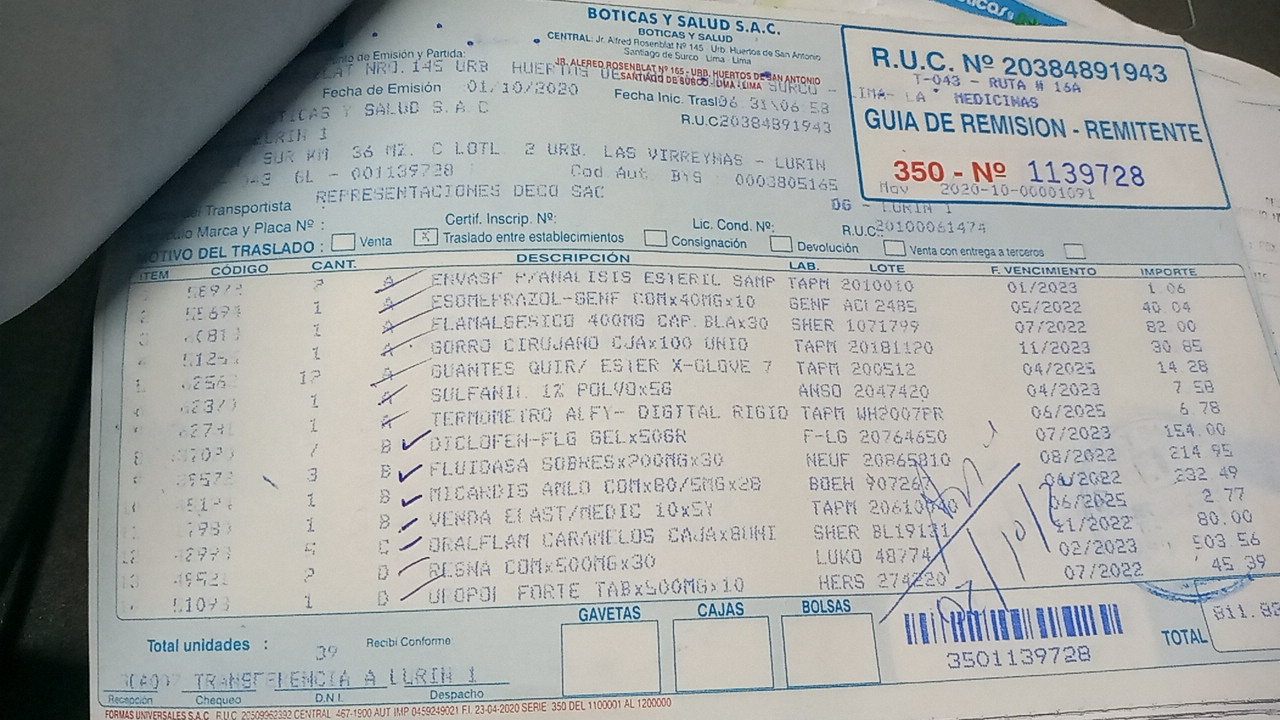 BOTICAS Y SALUD S.A.C.
BOTICAS Y SALUD
CENTRAL: Jr. Alfred Rosenblat Nº 145 - Urb. Huertos de San Antonio
Santiago de Surco - Lima - Lima
JR. ALFRED ROSENBLAT Nº 165 - URB. HUERTOS DE SAN ANTONIO
SANTIAGO DE SURCO - LIMA - LIMA
de Emisión y Partida:
NRO. 145 URB HUERTOS DE SURCO -
Fecha de Emisión 01/10/2020 Fecha Inic. Trasl 06 31\06 58
Y SALUD S.A.C R.U.C 20384891943
LURIN 1
SUR KM 36 MZ. C LOTL 2 URB. LAS VIRREYNAS - LURIN
GL - 001139728 Cod Aut. BYS 0003805165
REPRESENTACIONES DECO SAC
R.U.C. Nº 20384891943
T-043 - RUTA # 16A
MEDICINAS
GUIA DE REMISION - REMITENTE
350 - Nº 1139728
Mov 2020-10-00001091
DG - LURIN 1
Transportista
Marca y Placa Nº : Certif. Inscrip. Nº: Lic. Cond. Nº: R.U.C. 20100061474
MOTIVO DEL TRASLADO : Venta X Traslado entre establecimientos Consignación Devolución Venta con entrega a terceros
ITEM CÓDIGO CANT. DESCRIPCIÓN LAB. LOTE F. VENCIMIENTO IMPORTE
A ENVASE P/ANALISIS ESTERIL SAMP TAPM 2010010 01/2023 1.06
1 A ESOMEPRAZOL-GENF COMx40MGx10 GENF ACI2485 05/2022 40.04
1 A FLAMALGESICO 400MG CAP.BLAx30 SHER 1071799 07/2022 82.00
1 A GORRO CIRUJANO CJAx100 UNID TAPM 20181120 11/2023 30.85
12 A GUANTES QUIR/ ESTER X-GLOVE 7 TAPM 200512 04/2025 14.28
1 A SULFANIL 1% POLVOx5G ANSO 2047420 04/2023 7.58
1 A TERMOMETRO ALFY- DIGITAL RIGID TAPM WH2007PR 06/2025 6.78
7 B DICLOFEN-FLG GELx50GR F-LG 20764650 07/2023 154.00
3 B FLUIDASA SOBRESx200MGx30 NEUF 20865810 08/2022 214.95
1 B MICARDIS AMLO COMx80/5MGx28 BOEH 06/2022 232.49
1 B VENDA ELAST/MEDIC 10x5Y TAPM 06/2025 2.77
C ORALFLAM CARAMELOS CAJAx8UNI SHER BL19131 11/2022 80.00
D RESNA COMx500MGx30 LUKO 48774 02/2023 503.56
1 D FORTE TABx500MGx10 HERS 274220 07/2022 45.39
Total unidades : 39 Recibí Conforme
GAVETAS CAJAS BOLSAS
3501139728
TOTAL
TRANSFERENCIA A LURIN 1
Recepción Chequeo D.N.I. Despacho
FORMAS UNIVERSALES S.A.C. R.U.C. 20509962392 CENTRAL: 467-1900 AUT IMP 0459249021 F.I. 23-04-2020 SERIE 350 DEL 1100001 AL 1200000